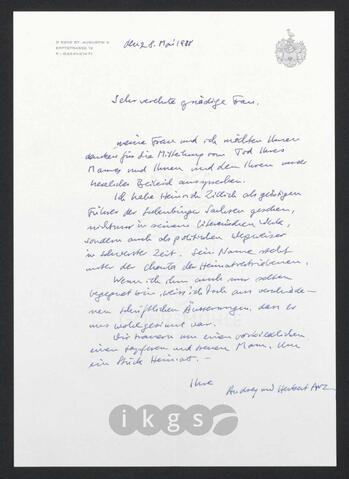 D 5205 ST. AUGUSTIN 2
den 28. Mai 1988
Sehr verehrte gnädige Frau,
meine Frau und ich möchten Ihnen
danken für die Mitteilung vom Tod Ihres
Mannes und Ihnen und den Ihren unser
herzliches Beileid aussprechen.
Ich habe Heinrich Zillich als geistigen
Führer der Siebenbürger Sachsen gesehen,
nicht nur in seinem literarischen Werk,
sondern auch als politischen Wegweiser
in schwerster Zeit. Sein Name steht
unter der Charta der Heimatvertriebenen.
Wenn ich ihm auch nur selten
begegnet bin, weiss ich doch aus verschiede-
nen schriftlichen Äusserungen, dass er
uns wohlgesinnt war.
Wir trauern um einen vorbildlichen
einen tapferen und treuen Mann. Um
ein Stück Heimat. –
Ihre
Audrey und Herbert
ikgs